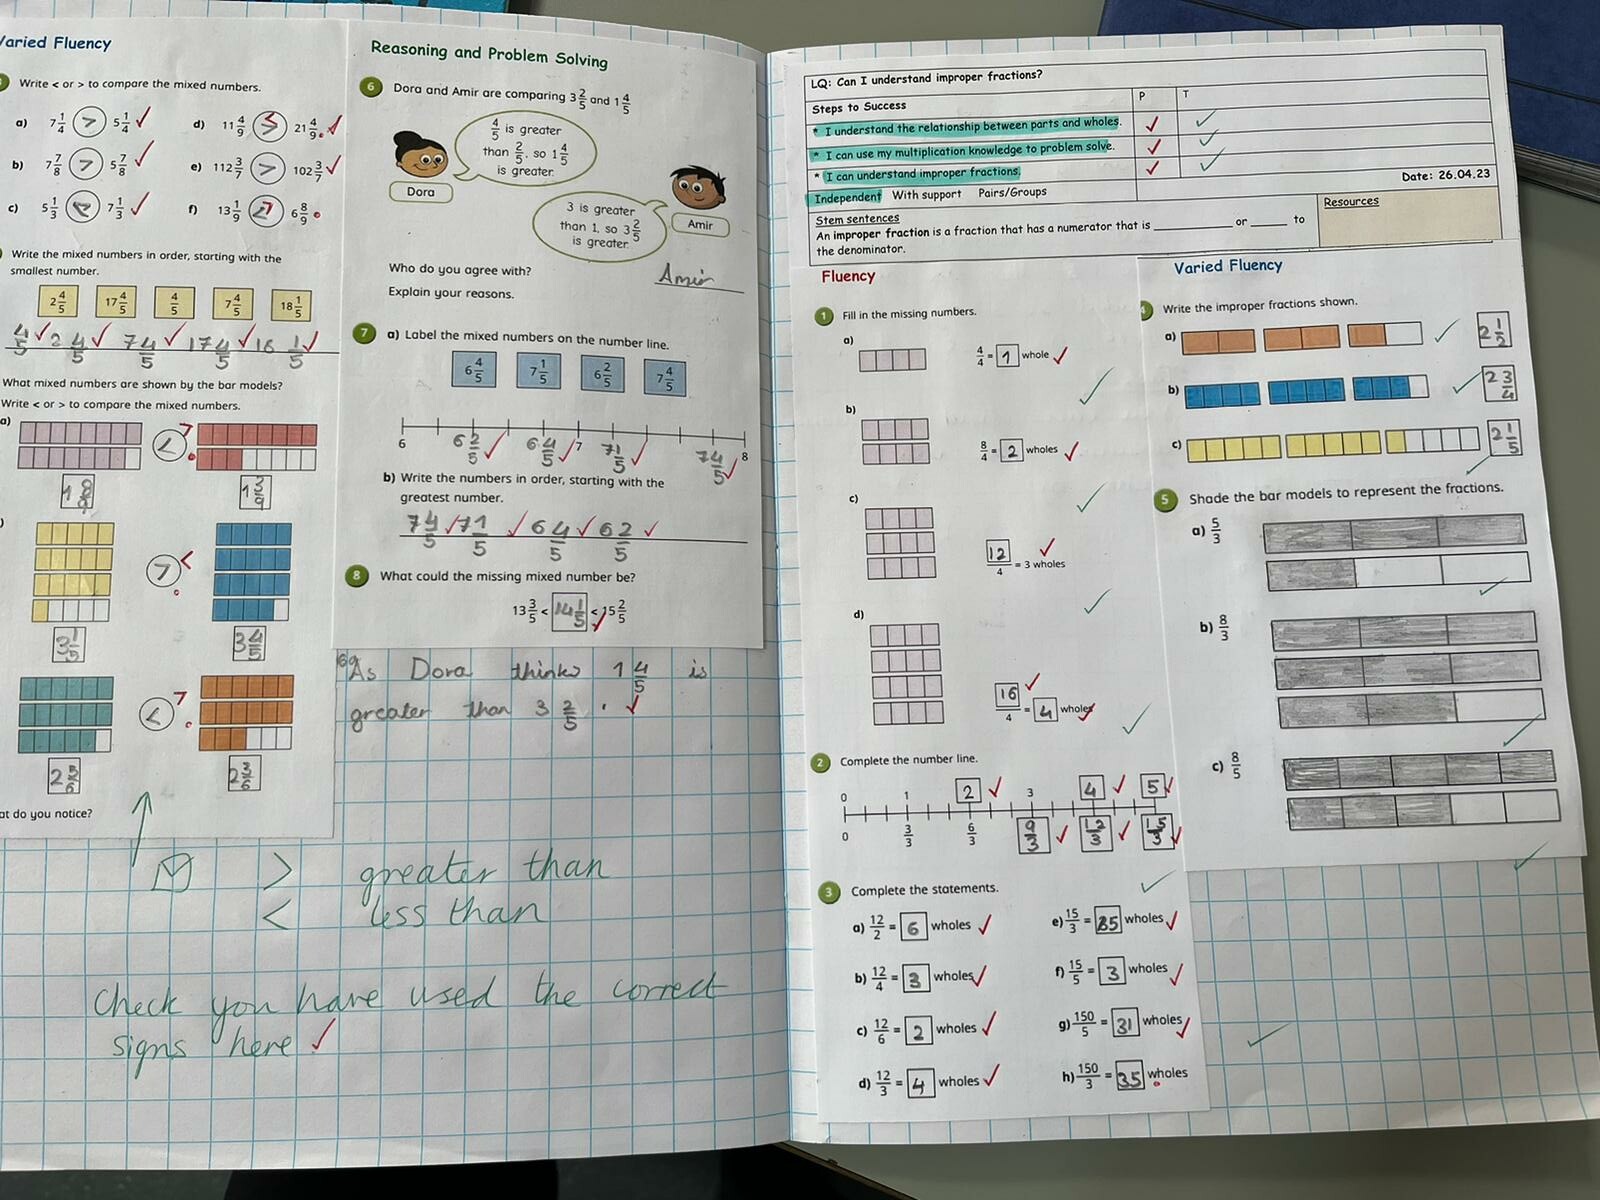 Varied Fluency
Write < or > to compare the mixed numbers.
a) 7 1/4 > 5 1/4 ✓
b) 7 7/8 > 5 7/8 ✓
c) 5 1/3 < 7 1/3 ✓
d) 11 4/9 21 4/9 ✓
e) 112 3/7 > 102 3/7 ✓
f) 13 1/9 6 8/9
Write the mixed numbers in order, starting with the
smallest number.
2 4/5 17 4/5 4/5 7 4/5 18 1/5
4/5 ✓ 2 4/5 ✓ 7 4/5 ✓ 17 4/5 ✓ 1/5 ✓
What mixed numbers are shown by the bar models?
Write < or > to compare the mixed numbers.
a) < >
1 3/9
> <
3 1/5 3 4/5
< >
2 5/6 2 3/6
do you notice?
> greater than
< less than
Check you have used the correct
signs here ✓
Reasoning and Problem Solving
6 Dora and Amir are comparing 3 2/5 and 1 4/5
4/5 is greater
than 2/5, so 1 4/5
is greater.
Dora
3 is greater
than 1, so 3 2/5
is greater.
Amir
Who do you agree with? Amir
Explain your reasons.
7 a) Label the mixed numbers on the number line.
6 4/5 7 1/5 6 2/5 7 4/5
6 6 2/5 ✓ 6 4/5 ✓ 7 7 1/5 ✓ 7 4/5 ✓ 8
b) Write the numbers in order, starting with the
greatest number.
7 4/5 ✓ 7 1/5 ✓ 6 4/5 ✓ 6 2/5 ✓
8 What could the missing mixed number be?
13 3/5 < 14 1/5 < 15 2/5
As Dora thinks 1 4/5 is
greater than 3 2/5 . ✓
LQ: Can I understand improper fractions?
Steps to Success P T
* I understand the relationship between parts and wholes. ✓ ✓
* I can use my multiplication knowledge to problem solve. ✓ ✓
* I can understand improper fractions. ✓ ✓
Independent With support Pairs/Groups
Date: 26.04.23
Stem sentences
An improper fraction is a fraction that has a numerator that is ____ or ____ to
the denominator.
Resources
Fluency
1 Fill in the missing numbers.
a) 4/4 = 1 whole ✓
b) 8/4 = 2 wholes ✓
c) 12/4 = 3 wholes ✓
d) 16/4 = 4 wholes ✓
2 Complete the number line.
0 1 2 ✓ 3 4 ✓ 5 ✓
0 3/3 6/3 9/3 ✓ 12/3 ✓ 15/3 ✓
3 Complete the statements.
a) 12/2 = 6 wholes ✓
b) 12/4 = 3 wholes ✓
c) 12/6 = 2 wholes ✓
d) 12/3 = 4 wholes ✓
e) 15/3 = wholes ✓
f) 15/5 = 3 wholes ✓
g) 150/5 = 31 wholes ✓
h) 150/3 = 35 wholes
Varied Fluency
4 Write the improper fractions shown.
a) ✓ 2 1/2
b) ✓ 2 3/4
c) ✓ 2 1/5
5 Shade the bar models to represent the fractions.
a) 5/3
b) 8/3
c) 8/5